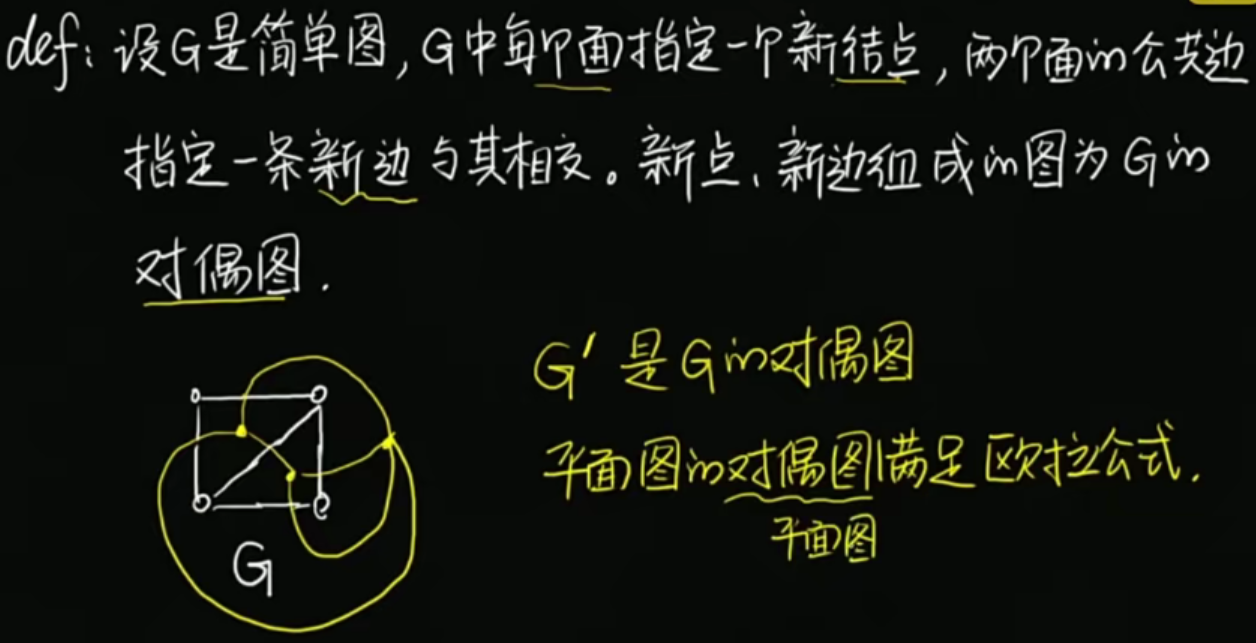 def: 设G是简单图,G中每个面指定一个新结点,两个面in公共边
指定一条新边与其相交。新点、新边组成in图为Gin
对偶图.
G' 是Gin对偶图
平面图in对偶图满足欧拉公式.
平面图
G